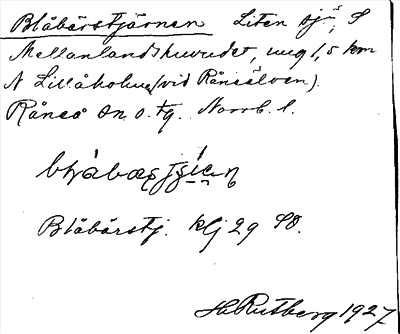 Blåbärstjärnen Liten sjö, S
Mellanlandshuvudet, ung 1,5 km
N Lillåholm (vid Råneälven).
Råneå sn. o. tg. Norrb. l.
Blåbärstj. klj 29 SO.
H. Rutberg 1927